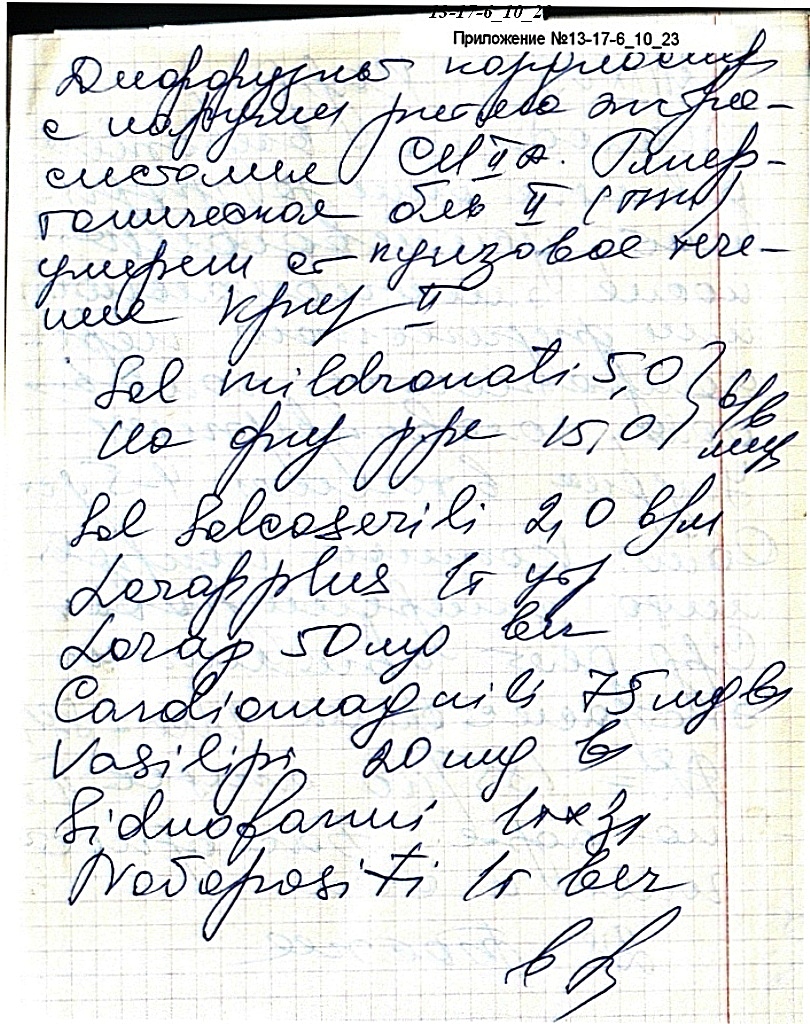 13-17-6_10_23
Приложение №13-17-6_10_23
Диффузный кардиоскл
с наруш ритма экстра-
систолия СН II А. Гипер-
тоническая б-нь II (
умерен кризовое тече-
ние Криз II
Sol mildronati 5,0
На физ р-ре 15,0 } в/в
Sol Solcoserili 2,0 в/м
Lorap plus 1т утр
Lorap 50 mg веч
Cardiomagnili 75 mg в
Vasilipi 20 mg в
Sidnofarmi 1т x 3р
1т веч